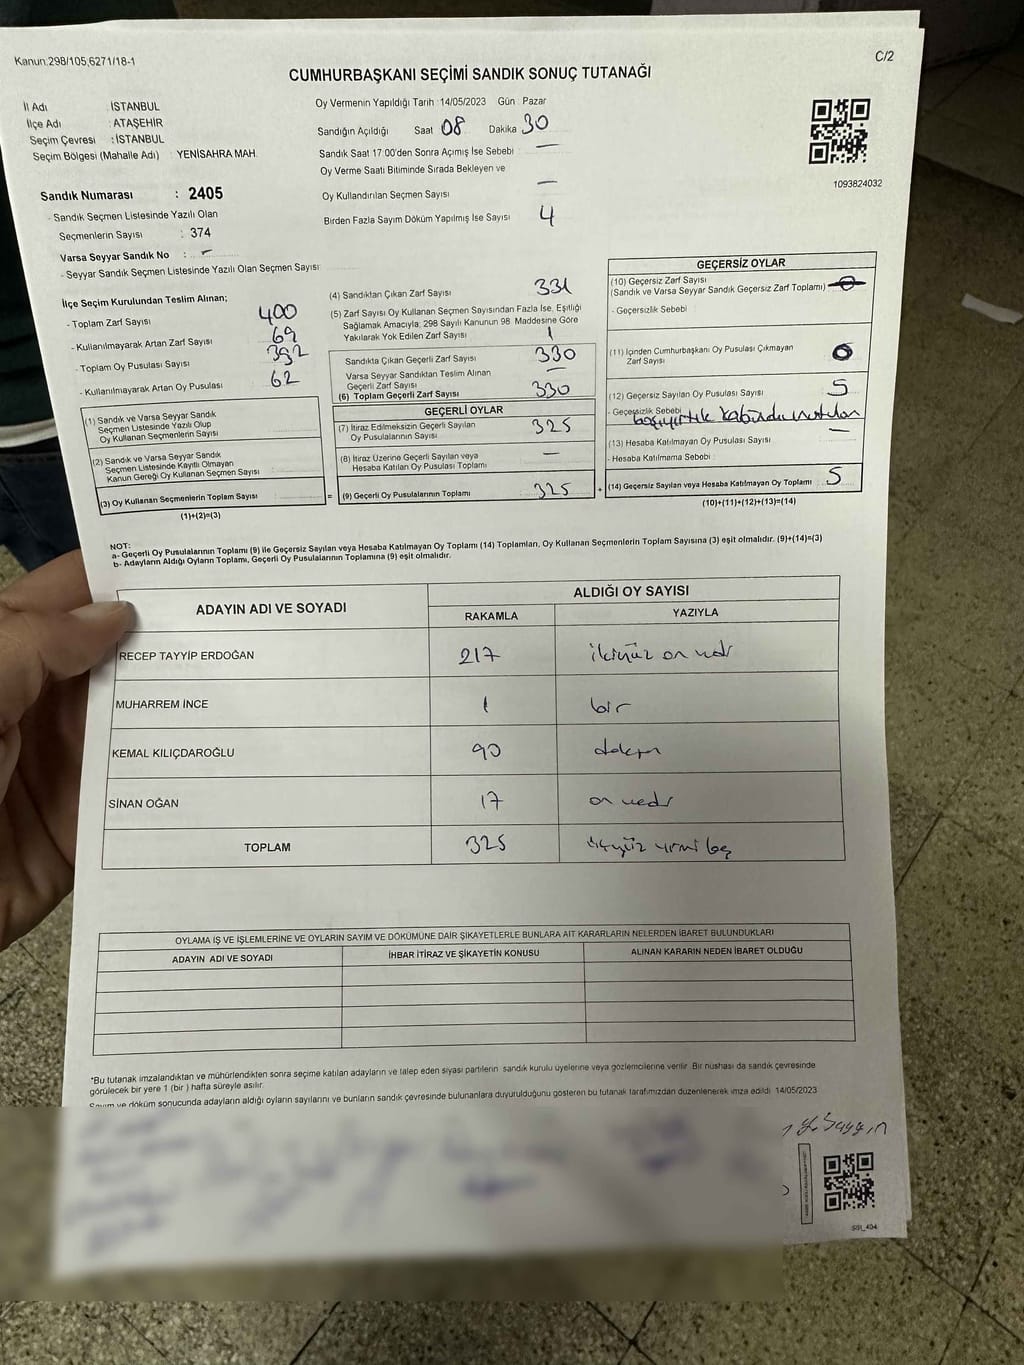 Kanun.298/105,6271/18-1
C/2
CUMHURBAŞKANI SEÇİMİ SANDIK SONUÇ TUTANAĞI
İl Adı : İSTANBUL
İlçe Adı : ATAŞEHİR
Seçim Çevresi : İSTANBUL
Seçim Bölgesi (Mahalle Adı) : YENİSAHRA MAH.
Sandık Numarası : 2405
- Sandık Seçmen Listesinde Yazılı Olan
Seçmenlerin Sayısı : 374
Varsa Seyyar Sandık No : -
- Seyyar Sandık Seçmen Listesinde Yazılı Olan Seçmen Sayısı
Oy Vermenin Yapıldığı Tarih :14/05/2023 Gün : Pazar
Sandığın Açıldığı Saat 08 Dakika 30
Sandık Saat 17.00'den Sonra Açımış İse Sebebi : —
Oy Verme Saati Bitiminde Sırada Bekleyen ve
Oy Kullandırılan Seçmen Sayısı —
Birden Fazla Sayım Döküm Yapılmış İse Sayısı 4
1093824032
İlçe Seçim Kurulundan Teslim Alınan;
- Toplam Zarf Sayısı 400
- Kullanılmayarak Artan Zarf Sayısı 69
- Toplam Oy Pusulası Sayısı 392
- Kullanılmayarak Artan Oy Pusulası 62
(1) Sandık ve Varsa Seyyar Sandık
Seçmen Listesinde Yazılı Olup
Oy Kullanan Seçmenlerin Sayısı
(2) Sandık ve Varsa Seyyar Sandık
Seçmen Listesinde Kayıtlı Olmayan
Kanun Gereği Oy Kullanan Seçmen Sayısı
(3) Oy Kullanan Seçmenlerin Toplam Sayısı
(1)+(2)=(3)
(4) Sandıktan Çıkan Zarf Sayısı 331
(5) Zarf Sayısı Oy Kullanan Seçmen Sayısından Fazla İse, Eşitliği
Sağlamak Amacıyla, 298 Sayılı Kanunun 98. Maddesine Göre
Yakılarak Yok Edilen Zarf Sayısı 1
Sandıkta Çıkan Geçerli Zarf Sayısı 330
Varsa Seyyar Sandıktan Teslim Alınan
Geçerli Zarf Sayısı —
(6) Toplam Geçerli Zarf Sayısı 330
GEÇERLİ OYLAR
(7) İtiraz Edilmeksizin Geçerli Sayılan
Oy Pusulalarının Sayısı 325
(8) İtiraz Üzerine Geçerli Sayılan veya
Hesaba Katılan Oy Pusulası Toplamı —
= (9) Geçerli Oy Pusulalarının Toplamı 325
GEÇERSİZ OYLAR
(10) Geçersiz Zarf Sayısı
(Sandık ve Varsa Seyyar Sandık Geçersiz Zarf Toplamı) 0
- Geçersizlik Sebebi
(11) İçinden Cumhurbaşkanı Oy Pusulası Çıkmayan
Zarf Sayısı 0
(12) Geçersiz Sayılan Oy Pusulası Sayısı 5
- Geçersizlik Sebebi
(13) Hesaba Katılmayan Oy Pusulası Sayısı —
- Hesaba Katılmama Sebebi :
+ (14) Geçersiz Sayılan veya Hesaba Katılmayan Oy Toplamı 5
(10)+(11)+(12)+(13)=(14)
NOT:
a- Geçerli Oy Pusulalarının Toplamı (9) ile Geçersiz Sayılan veya Hesaba Katılmayan Oy Toplamı (14) Toplamları, Oy Kullanan Seçmenlerin Toplam Sayısına (3) eşit olmalıdır. (9)+(14)=(3)
b- Adayların Aldığı Oyların Toplamı, Geçerli Oy Pusulalarının Toplamına (9) eşit olmalıdır.
ADAYIN ADI VE SOYADI ALDIĞI OY SAYISI
RAKAMLA YAZIYLA
RECEP TAYYİP ERDOĞAN 217 ikiyüz on yedi
MUHARREM İNCE 1 bir
KEMAL KILIÇDAROĞLU 90 doksan
SİNAN OĞAN 17 on yedi
TOPLAM 325 üçyüz yirmi beş
OYLAMA İŞ VE İŞLEMLERİNE VE OYLARIN SAYIM VE DÖKÜMÜNE DAİR ŞİKAYETLERLE BUNLARA AİT KARARLARIN NELERDEN İBARET BULUNDUKLARI
ADAYIN ADI VE SOYADI İHBAR İTİRAZ VE ŞİKAYETİN KONUSU ALINAN KARARIN NEDEN İBARET OLDUĞU
*Bu tutanak imzalandıktan ve mühürlendikten sonra seçime katılan adayların ve talep eden siyasi partilerin sandık kurulu üyelerine veya gözlemcilerine verilir. Bir nüshası da sandık çevresinde
görülecek bir yere 1 (bir ) hafta süreyle asılır.
Sayım ve döküm sonucunda adayların aldığı oyların sayılarını ve bunların sandık çevresinde bulunanlara duyurulduğunu gösteren bu tutanak tarafımızdan düzenlenerek imza edildi. 14/05/2023